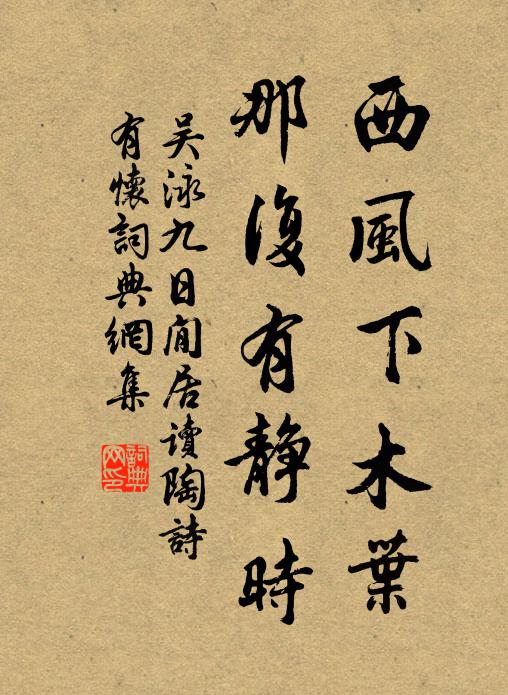 西風下木葉
那復有靜時
吳泳九日閒居讀陶詩
有懷詞典網集
詞典
网印